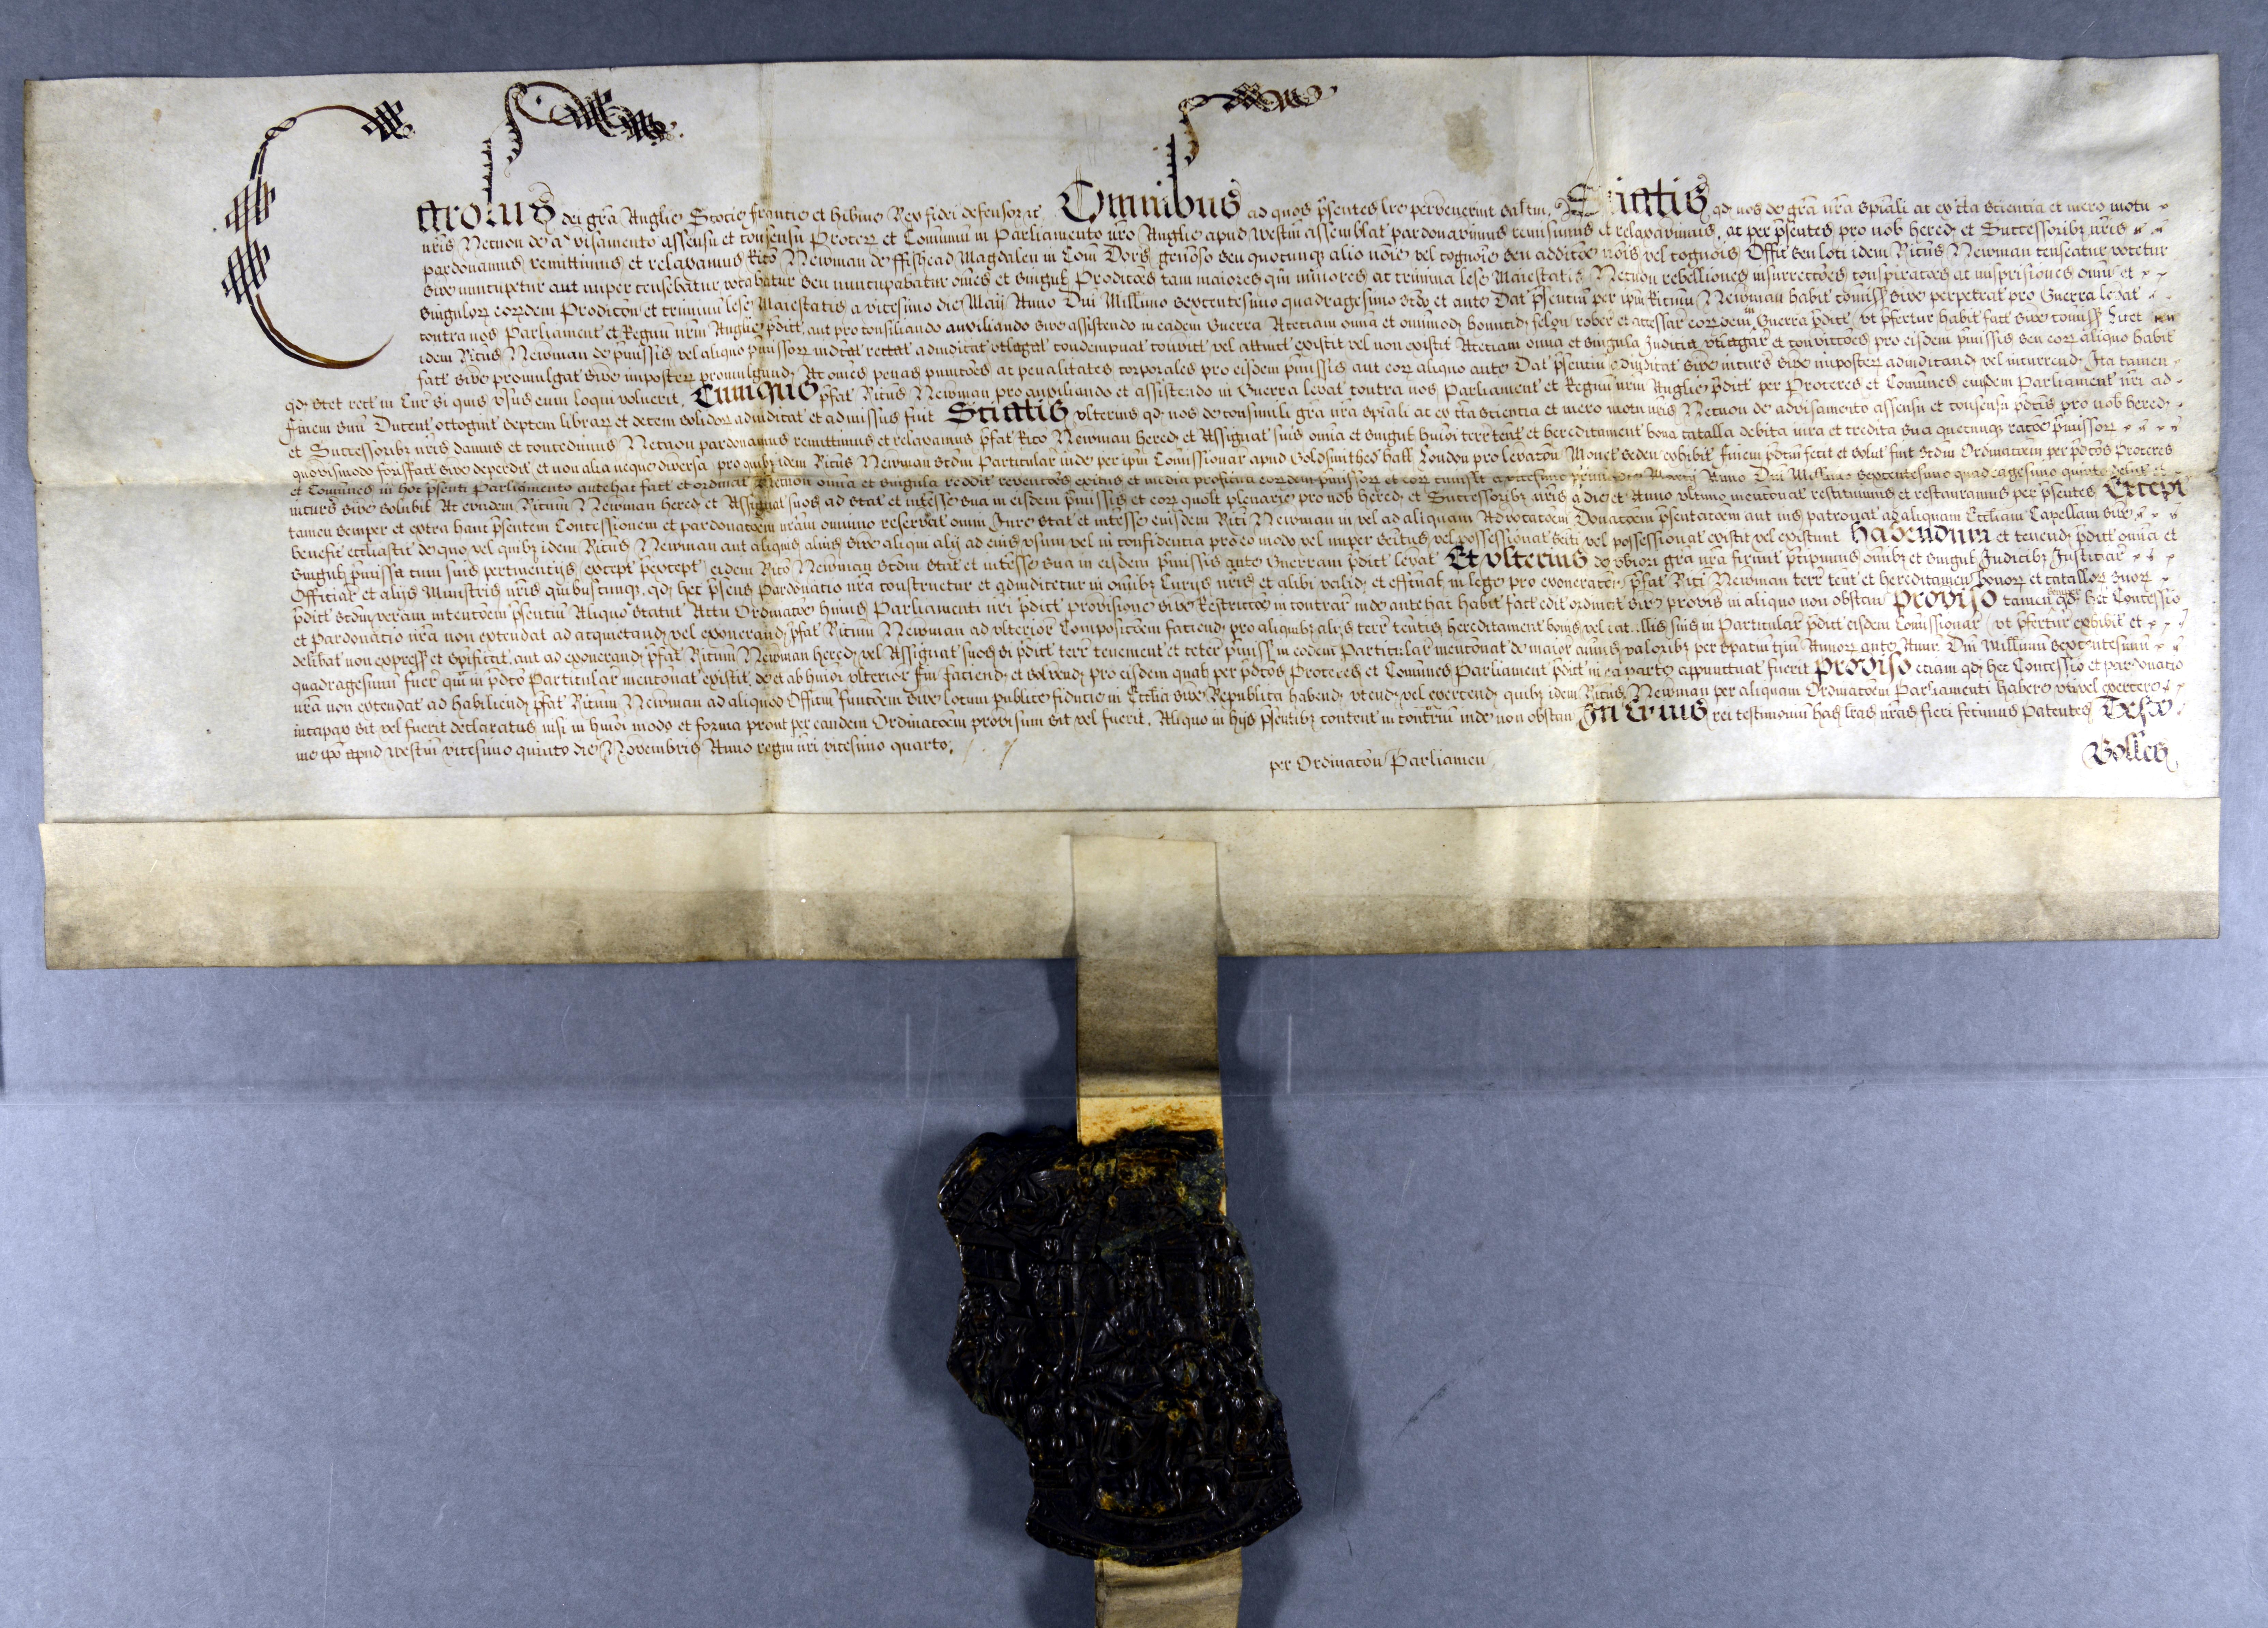 Carolus dei gr̃a Anglie Scocie ffrancie et Hib̃nie Rex fidei defensor &c. Omnibus ad quos p̃sentes l̃re pervenerint sal̃tm. Sciatis qd nos de gr̃a ñra sp̃iali ac ex c̃ta sciencia et mero motu
ñris Necnon de advisamento assensu et consensu Procer̃ et Com̃uniũ in Parliamento ñro Anglie apud Westm̃ assemblat pardonavimus remisimus et relaxavimus, ac per p̃sentes pro nob hered et Successorib3 ñris
pardonamus remittimus et relaxamus Ric̃o Newman de ffifehead Magdalen in Com̃ Dors̃ gen̄oso seu quocunq3 alio nõie vel cognõie seu addic̃oe nõis vel cognõis Offic̃ seu loci idem Ric̃us Newman censeatur vocetur
sive nuncupetur aut nuper censebatur vocabatur seu nuncupabatur om̃es et singul̃ Prodic̃oes tam maiores qm̃ minores ac crimina lese Maiestatis Necnon rebelliones insurrecc̃oes conspirac̃oes ac misprisiones om̃iũ et
singulor̃ eor̃dem Prodic̃on̄ et criminũ lese Maiestatis a vicesimo die Maii Anno Dñi Millimo sexcentesimo quadragesimo s̃c̃do et ante Dat p̃sentiũ per ip̃m Ric̃um Newman habit com̃iss̃ sive perpetrat pro Guerra levat
contra nos Parliament et Regnũ ñrm Anglie p̃dict aut pro consiliando auxiliando sive assistendo in eadem Guerra Acetiam om̃ia et om̃imod homicid felon̄ rober̃ et accessar̃ eor̃dem in Guerra p̃dict ut p̃fertur habit fact sive com̃iss̃ Licet
idem Ric̃us Newman de p̃miss̃is vel aliquo p̃missor̃ indictat rectat adiudicat utlagat condempnat convict vel attinct existit vel non existit Acetiam om̃ia et singula Judicia utlagar̃ et convicc̃oes pro eisdem p̃miss̃is seu eor̃ aliquo habit
fact sive promulgat sive imposter̃ promulgand Ac om̃es penas punic̃oes ac penalitates corporales pro eisdem p̃miss̃is aut eor̃ aliquo ante Dat p̃sentiũ adiudicat sive incurs̃ sive imposter̃ adiudicand vel incurrend Ita tamen
qd stet rect in Cur̃ si quis v̄sus eum loqui voluerit. Cumque p̃fat Ric̃us Newman pro auxiliando et assistendo in Guerra levat contra nos Parliament et Regnũ ñrm Anglie p̃dict per Proceres et Com̃unes eiusdem Parliament ñri ad
finem suũ Ducent octogint septem librar̃ et decem solidor̃ adiudicat et admissus fuit Sciatis ulterius qd nos de consimili gr̃a ñra sp̃iali ac ex c̃ta sciencia et mero motu ñris Necnon de advisamento assensu et consensu p̃dc̃is pro nob hered
et Successorib3 ñris damus et concedimus Necnon pardonamus remittimus et relaxamus p̃fat Ric̃o Newman hered et Assignat suis om̃ia et singul̃ hm̃oi terr̃ teñt et hereditament bona catalla debita iura et credita sua quecunq3 rac̃oe p̃missor̃
quovismodo forisfact sive deperdit et non alia neque diversa pro quib3 idem Ric̃us Newman sc̃dm Particular̃ inde per ip̃m Com̃issionar̃ apud Goldsmithes hall London pro levac̃on̄ Monet sedeñ exhibit finem p̃dc̃um fecit et solut fuit sc̃dm Ordinac̃oem per p̃dc̃os Proceres
et Com̃unes in hoc p̃senti Parliamento antehac fact et ordinat Necnon om̃ia et singula reddit revenc̃oes exitus et media proficua eor̃dem p̃missor̃ et eor̃ cuiusl̃t a vicesimo primo die Marcij Anno Dñi Millimo sexcentesimo quadragesimo quinto debit et
incurs̃ sive solubil̃ Ac eundem Ric̃um Newman hered et Assignat suos ad stat et int̃esse sua in eisdem p̃miss̃is et eor̃ quol̃t plenarie pro nob hered et Successorib3 ñris a die et Anno ultimo menc̃onat restituimus et restauramus per p̃sentes Except
tamen semper et extra hanc p̃sentem Concessionem et pardonac̃oem ñram omnino reservat om̃i Jure stat et int̃esse eiusdem Ric̃i Newman in vel ad aliquam Advocac̃oem Donac̃oem p̃sentac̃oem aut ius patronat ad aliquam Eccl̃iam Capellam sive
benefic̃ eccl̃iastic̃ de quo vel quib3 idem Ric̃us Newman aut aliquis alius sive aliqui alij ad eius usum vel in confidencia pro eo modo vel nuper seitus vel possessionat seiti vel possessionat existit vel existunt Habendum et tenend p̃dict om̃ia et
singul̃ p̃miss̃a cum suis pertinentijs (except p̃except) eidem Ric̃o Newman sc̃dm stat et int̃esse sua in eisdem p̃miss̃is ante Guerram p̃dict levat Et ulterius de ub̃iori gr̃a ñra firmit p̃cipimus om̃ib3 et singul̃ Judicib3 Justiciar̃
Officiar̃ et alijs Ministris ñris quibuscunq3 qd hec p̃sens Pardonatio ñra construetur et adiudicetur in om̃ib3 Curijs ñris et alibi valid et effc̃ual̃ in lege pro exonerac̃oe p̃fat Ric̃i Newman terr̃ teñt et hereditamen bonor̃ et catallor̃ suor̃
p̃dict sc̃dm veram intenc̃oem p̃sentiũ Aliquo Statut Actu Ordinac̃oe huius Parliamenti ñri p̃dict provisione sive Restricc̃oe in contrar̃ inde ante hac habit fact edit ordinat sive provis̃ in aliquo non obstan̄ Proviso tamen semper qd hec Concessio
et Pardonatio ñra non extendat ad acquietand vel exonerand p̃fat Ric̃um Newman ad ulterior̃ Composic̃oem faciend pro aliquib3 alijs terr̃ teñtis hereditament bonis vel cat..llis suis in Particular̃ p̃dict eisdem Com̃issionar̃ (ut p̃fertur) exhibit et
delibat non express̃ et sp̃ificat. aut ad exonerand p̃fat Ric̃um Newman hered vel Assignat suos si p̃dict terr̃ tenement et ceter̃ p̃miss̃ in eodem Particular̃ menc̃onat de maior̃ annuis valorib3 per spatiũ triũ Annor̃ ante Annũ Dñi Millimũ sexcentesimũ
quadragesimũ fuer̃ qm̃ in p̃dc̃o Particular̃ menc̃onat existit de et ab hm̃oi ulterior̃ fin̄ faciend et solvend pro eisdem qual̃ per p̃dc̃os Proceres et Com̃unes Parliament p̃dict in ea parte appunctuat fuerit Proviso etiam qd hec Concessio et pardonatio
ñra non extendat ad habiliend p̃fat Ric̃um Newman ad aliquod Officiũ func̃oem sive locum publice fiducie in Eccl̃ia sive Republica habend utend vel exercend quib3 idem Ric̃us Newman per aliquam Ordinac̃oem Parliamenti habere uti vel exercere
incapax sit vel fuerit declaratus nisi in hm̃oi modo et forma prout per eandem Ordinac̃oem provisum sit vel fuerit. Aliquo in hijs p̃sentib3 content in contrariũ inde non obstan̄ In Cuius rei testimoniũ has l̃ras ñras fieri fecimus Patentes Teste
me ip̃o apud Westm̃ vicesimo quinto die Novembris Anno regni ñri vicesimo quarto.
per Ordinac̃oñ Parliamen̄
Bolles